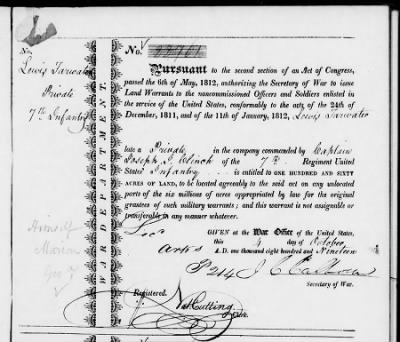 No.
Lewis Tarwater
Private
7th Infantry
WAR DEPARTMENT.
No.
Pursuant to the second section of an Act of Congress,
passed the 6th of May, 1812, authorizing the Secretary of War to issue
Land Warrants to the noncommissioned Officers and Soldiers enlisted in
the service of the United States, conformably to the acts of the 24th of
December, 1811, and of the 11th of January, 1812, Lewis Tarwater
late a Private in the company commanded by Captain
Joseph J. Clinch of the 7th Regiment United
States' Infantry is entitled to ONE HUNDRED AND SIXTY
ACRES OF LAND, to be located agreeably to the said act on any unlocated
parts of the six millions of acres appropriated by law for the original
grantees of such military warrants; and this warrant is not assignable or
transferable in any manner whatever.
GIVEN at the War Office of the United States,
this 4 day of October
A.D. one thousand eight hundred and Nineteen
Arks
Himself
Marion
Geo
J C Calhoun
Secretary of War.
Registered.
Nat Cutting